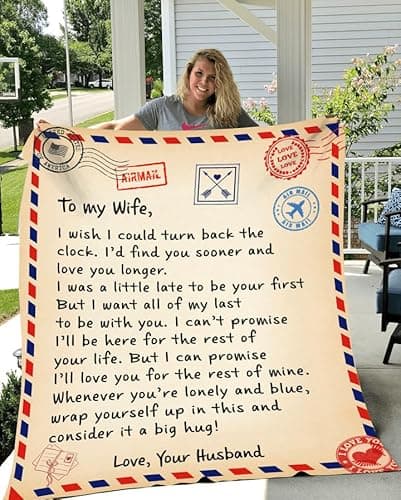 UNITED STATES
AMERICA
AIRMAIL
LOVE
LOVE
LOVE
AIR MAIL
AIR MAIL
To my Wife,
I wish I could turn back the
clock. I'd find you sooner and
love you longer.
I was a little late to be your first
But I want all of my last
to be with you. I can't promise
I'll be here for the rest of
your life. But I can promise
I'll love you for the rest of mine.
Whenever you're lonely and blue,
wrap yourself up in this and
consider it a big hug!
Love, Your Husband
I LOVE YOU
LOVE